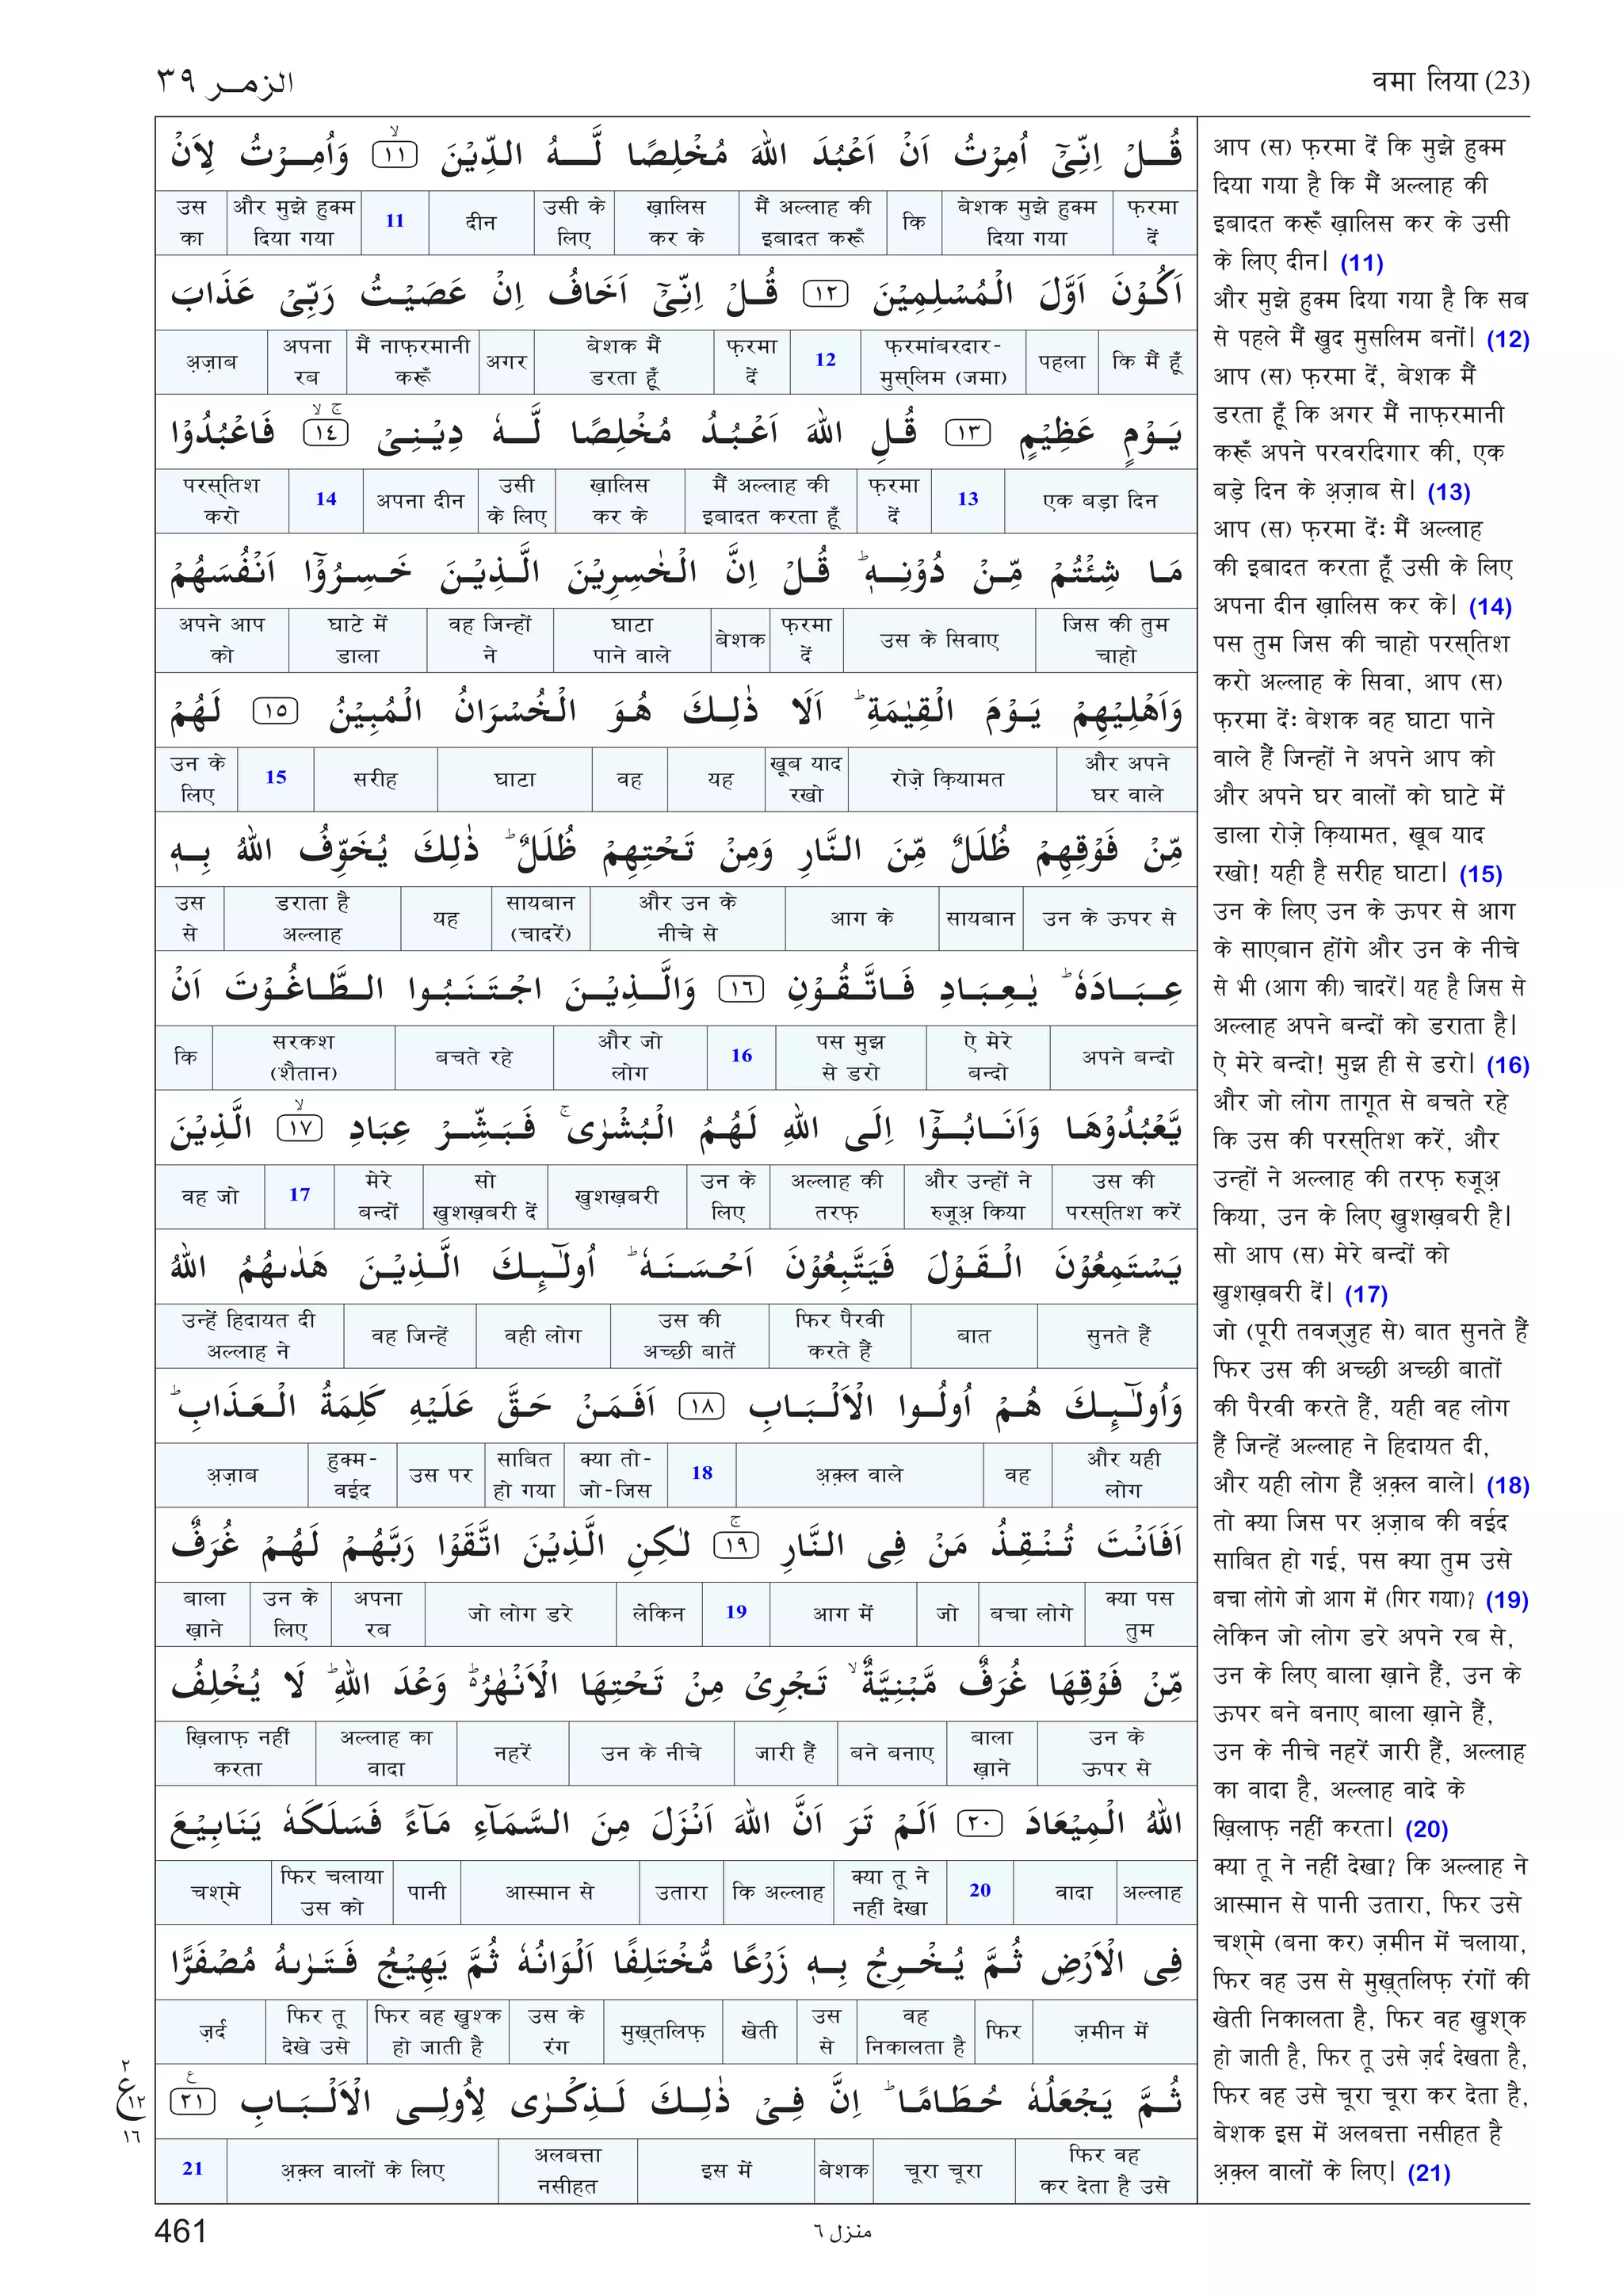 الزمر ٣٩
वमा लिया (23)
قُلْ اِنِّىْٓ اُمِرْتُ اَنْ اَعْبُدَ اللّٰهَ مُخْلِصًا لَّهُ الدِّيْنَ ۙ ١١ وَاُمِرْتُ لِاَنْ
फ़रमा दें | बेशक मुझे हुक्म दिया गया | कि | मैं अल्लाह की इबादत करूँ | ख़ालिस कर के | उसी के लिए | दीन | 11 | और मुझे हुक्म दिया गया | उस का
اَكُوْنَ اَوَّلَ الْمُسْلِمِيْنَ ١٢ قُلْ اِنِّىْٓ اَخَافُ اِنْ عَصَيْتُ رَبِّىْ عَذَابَ
कि मैं हूँ | पहला | फ़रमांबरदार-मुस्लिम (जमा) | 12 | फ़रमा दें | बेशक मैं डरता हूँ | अगर | मैं नाफ़रमानी करूँ | अपना रब | अ़ज़ाब
يَوْمٍ عَظِيْمٍ ١٣ قُلِ اللّٰهَ اَعْبُدُ مُخْلِصًا لَّهٗ دِيْنِىْ ۙۚ ١٤ فَاعْبُدُوْا
एक बड़ा दिन | 13 | फ़रमा दें | मैं अल्लाह की इबादत करता हूँ | ख़ालिस कर के | उसी के लिए | अपना दीन | 14 | परस्तिश करो
مَا شِئْتُمْ مِّنْ دُوْنِهٖ ؕ قُلْ اِنَّ الْخٰسِرِيْنَ الَّذِيْنَ خَسِرُوْٓا اَنْفُسَهُمْ
जिस की तुम चाहो | उस के सिवाए | फ़रमा दें | बेशक | घाटा पाने वाले | वह जिन्हों ने | घाटे में डाला | अपने आप को
وَاَهْلِيْهِمْ يَوْمَ الْقِيٰمَةِ ؕ اَلَا ذٰلِكَ هُوَ الْخُسْرَانُ الْمُبِيْنُ ١٥ لَهُمْ
और अपने घर वाले | रोज़े क़ियामत | खूब याद रखो | यह | वह | घाटा | सरीह | 15 | उन के लिए
مِّنْ فَوْقِهِمْ ظُلَلٌ مِّنَ النَّارِ وَمِنْ تَحْتِهِمْ ظُلَلٌ ؕ ذٰلِكَ يُخَوِّفُ اللّٰهُ بِهٖ
उन के ऊपर से | सायबान | आग के | और उन के नीचे से | सायबान (चादरें) | यह | डराता है अल्लाह | उस से
عِبَادَهٗ ؕ يٰعِبَادِ فَاتَّقُوْنِ ١٦ وَالَّذِيْنَ اجْتَنَبُوا الطَّاغُوْتَ اَنْ
अपने बन्दो | ऐ मेरे बन्दो | पस मुझ से डरो | 16 | और जो लोग | बचते रहे | सरकश (शैतान) | कि
يَّعْبُدُوْهَا وَاَنَابُوْٓا اِلَى اللّٰهِ لَهُمُ الْبُشْرٰى ۚ فَبَشِّرْ عِبَادِ ۙ ١٧ الَّذِيْنَ
उस की परस्तिश करें | और उन्हों ने रुजूअ़ किया | अल्लाह की तरफ़ | उन के लिए | खुशख़बरी | सो खुशख़बरी दें | मेरे बन्दों | 17 | वह जो
يَسْتَمِعُوْنَ الْقَوْلَ فَيَتَّبِعُوْنَ اَحْسَنَهٗ ؕ اُولٰٓئِكَ الَّذِيْنَ هَدٰىهُمُ اللّٰهُ
सुनते हैं | बात | फिर पैरवी करते हैं | उस की अच्छी बातें | वही लोग | वह जिन्हें | उन्हें हिदायत दी अल्लाह ने
وَاُولٰٓئِكَ هُمْ اُولُوا الْاَلْبَابِ ١٨ اَفَمَنْ حَقَّ عَلَيْهِ كَلِمَةُ الْعَذَابِ ؕ
और यही लोग | वह | अ़क़्ल वाले | 18 | क्या तो-जो-जिस | साबित हो गया | उस पर | हुक्म-वईद | अ़ज़ाब
اَفَاَنْتَ تُنْقِذُ مَنْ فِى النَّارِ ۚ ١٩ لٰكِنِ الَّذِيْنَ اتَّقَوْا رَبَّهُمْ لَهُمْ غُرَفٌ
क्या पस तुम | बचा लोगे | जो | आग में | 19 | लेकिन | जो लोग डरे | अपना रब | उन के लिए | बाला ख़ाने
مِّنْ فَوْقِهَا غُرَفٌ مَّبْنِيَّةٌ ۙ تَجْرِىْ مِنْ تَحْتِهَا الْاَنْهٰرُ ؕ۬ وَعْدَ اللّٰهِ ؕ لَا يُخْلِفُ
उन के ऊपर से | बाला ख़ाने | बने बनाए | जारी हैं | उन के नीचे | नहरें | अल्लाह का वादा | ख़िलाफ़ नहीं करता
اللّٰهُ الْمِيْعَادَ ٢٠ اَلَمْ تَرَ اَنَّ اللّٰهَ اَنْزَلَ مِنَ السَّمَآءِ مَآءً فَسَلَكَهٗ يَنَابِيْعَ
अल्लाह | वादा | 20 | क्या तू ने नहीं देखा | कि अल्लाह | उतारा | आस्मान से | पानी | फिर चलाया उस को | चश्मे
فِى الْاَرْضِ ثُمَّ يُخْرِجُ بِهٖ زَرْعًا مُّخْتَلِفًا اَلْوَانُهٗ ثُمَّ يَهِيْجُ فَتَرٰىهُ مُصْفَرًّا
ज़मीन में | फिर | वह निकालता है | उस से | खेती | मुख़्तलिफ़ | उस के रंग | फिर वह खुश्क हो जाती है | फिर तू देखे उसे | ज़र्द
ثُمَّ يَجْعَلُهٗ حُطَامًا ؕ اِنَّ فِىْ ذٰلِكَ لَذِكْرٰى لِاُولِى الْاَلْبَابِ ۧ ٢١
फिर वह कर देता है उसे | चूरा चूरा | बेशक | इस में | अलबत्ता नसीहत | अ़क़्ल वालों के लिए | 21
٢
ع ١٢
١٦
आप (स) फ़रमा दें कि मुझे हुक्म
दिया गया है कि मैं अल्लाह की
इबादत करूँ ख़ालिस कर के उसी
के लिए दीन। (11)
और मुझे हुक्म दिया गया है कि सब
से पहले मैं खुद मुसलिम बनों। (12)
आप (स) फ़रमा दें, बेशक मैं
डरता हूँ कि अगर मैं नाफ़रमानी
करूँ अपने परवरदिगार की, एक
बड़े दिन के अ़ज़ाब से। (13)
आप (स) फ़रमा दें: मैं अल्लाह
की इबादत करता हूँ उसी के लिए
अपना दीन ख़ालिस कर के। (14)
पस तुम जिस की चाहो परस्तिश
करो अल्लाह के सिवा, आप (स)
फ़रमा दें: बेशक वह घाटा पाने
वाले हैं जिन्हों ने अपने आप को
और अपने घर वालों को घाटे में
डाला रोज़े क़ियामत, खूब याद
रखो! यही है सरीह घाटा। (15)
उन के लिए उन के ऊपर से आग
के साएबान होंगे और उन के नीचे
से भी (आग की) चादरें। यह है जिस से
अल्लाह अपने बन्दों को डराता है।
ऐ मेरे बन्दो! मुझ ही से डरो। (16)
और जो लोग तागूत से बचते रहे
कि उस की परस्तिश करें, और
उन्हों ने अल्लाह की तरफ़ रुजूअ़
किया, उन के लिए खुशख़बरी है।
सो आप (स) मेरे बन्दों को
खुशख़बरी दें। (17)
जो (पूरी तवज्जुह से) बात सुनते हैं
फिर उस की अच्छी अच्छी बातों
की पैरवी करते हैं, यही वह लोग
हैं जिन्हें अल्लाह ने हिदायत दी,
और यही लोग हैं अ़क़्ल वाले। (18)
तो क्या जिस पर अ़ज़ाब की वईद
साबित हो गई, पस क्या तुम उसे
बचा लोगे जो आग में (गिर गया)? (19)
लेकिन जो लोग डरे अपने रब से,
उन के लिए बाला ख़ाने हैं, उन के
ऊपर बने बनाए बाला ख़ाने हैं,
उन के नीचे नहरें जारी हैं, अल्लाह
का वादा है, अल्लाह वादे के
ख़िलाफ़ नहीं करता। (20)
क्या तू ने नहीं देखा? कि अल्लाह ने
आस्मान से पानी उतारा, फिर उसे
चश्मे (बना कर) ज़मीन में चलाया,
फिर वह उस से मुख़्तलिफ़ रंगों की
खेती निकालता है, फिर वह खुश्क
हो जाती है, फिर तू उसे ज़र्द देखता है,
फिर वह उसे चूरा चूरा कर देता है,
बेशक इस में अलबत्ता नसीहत है
अ़क़्ल वालों के लिए। (21)
461
منزل ٦